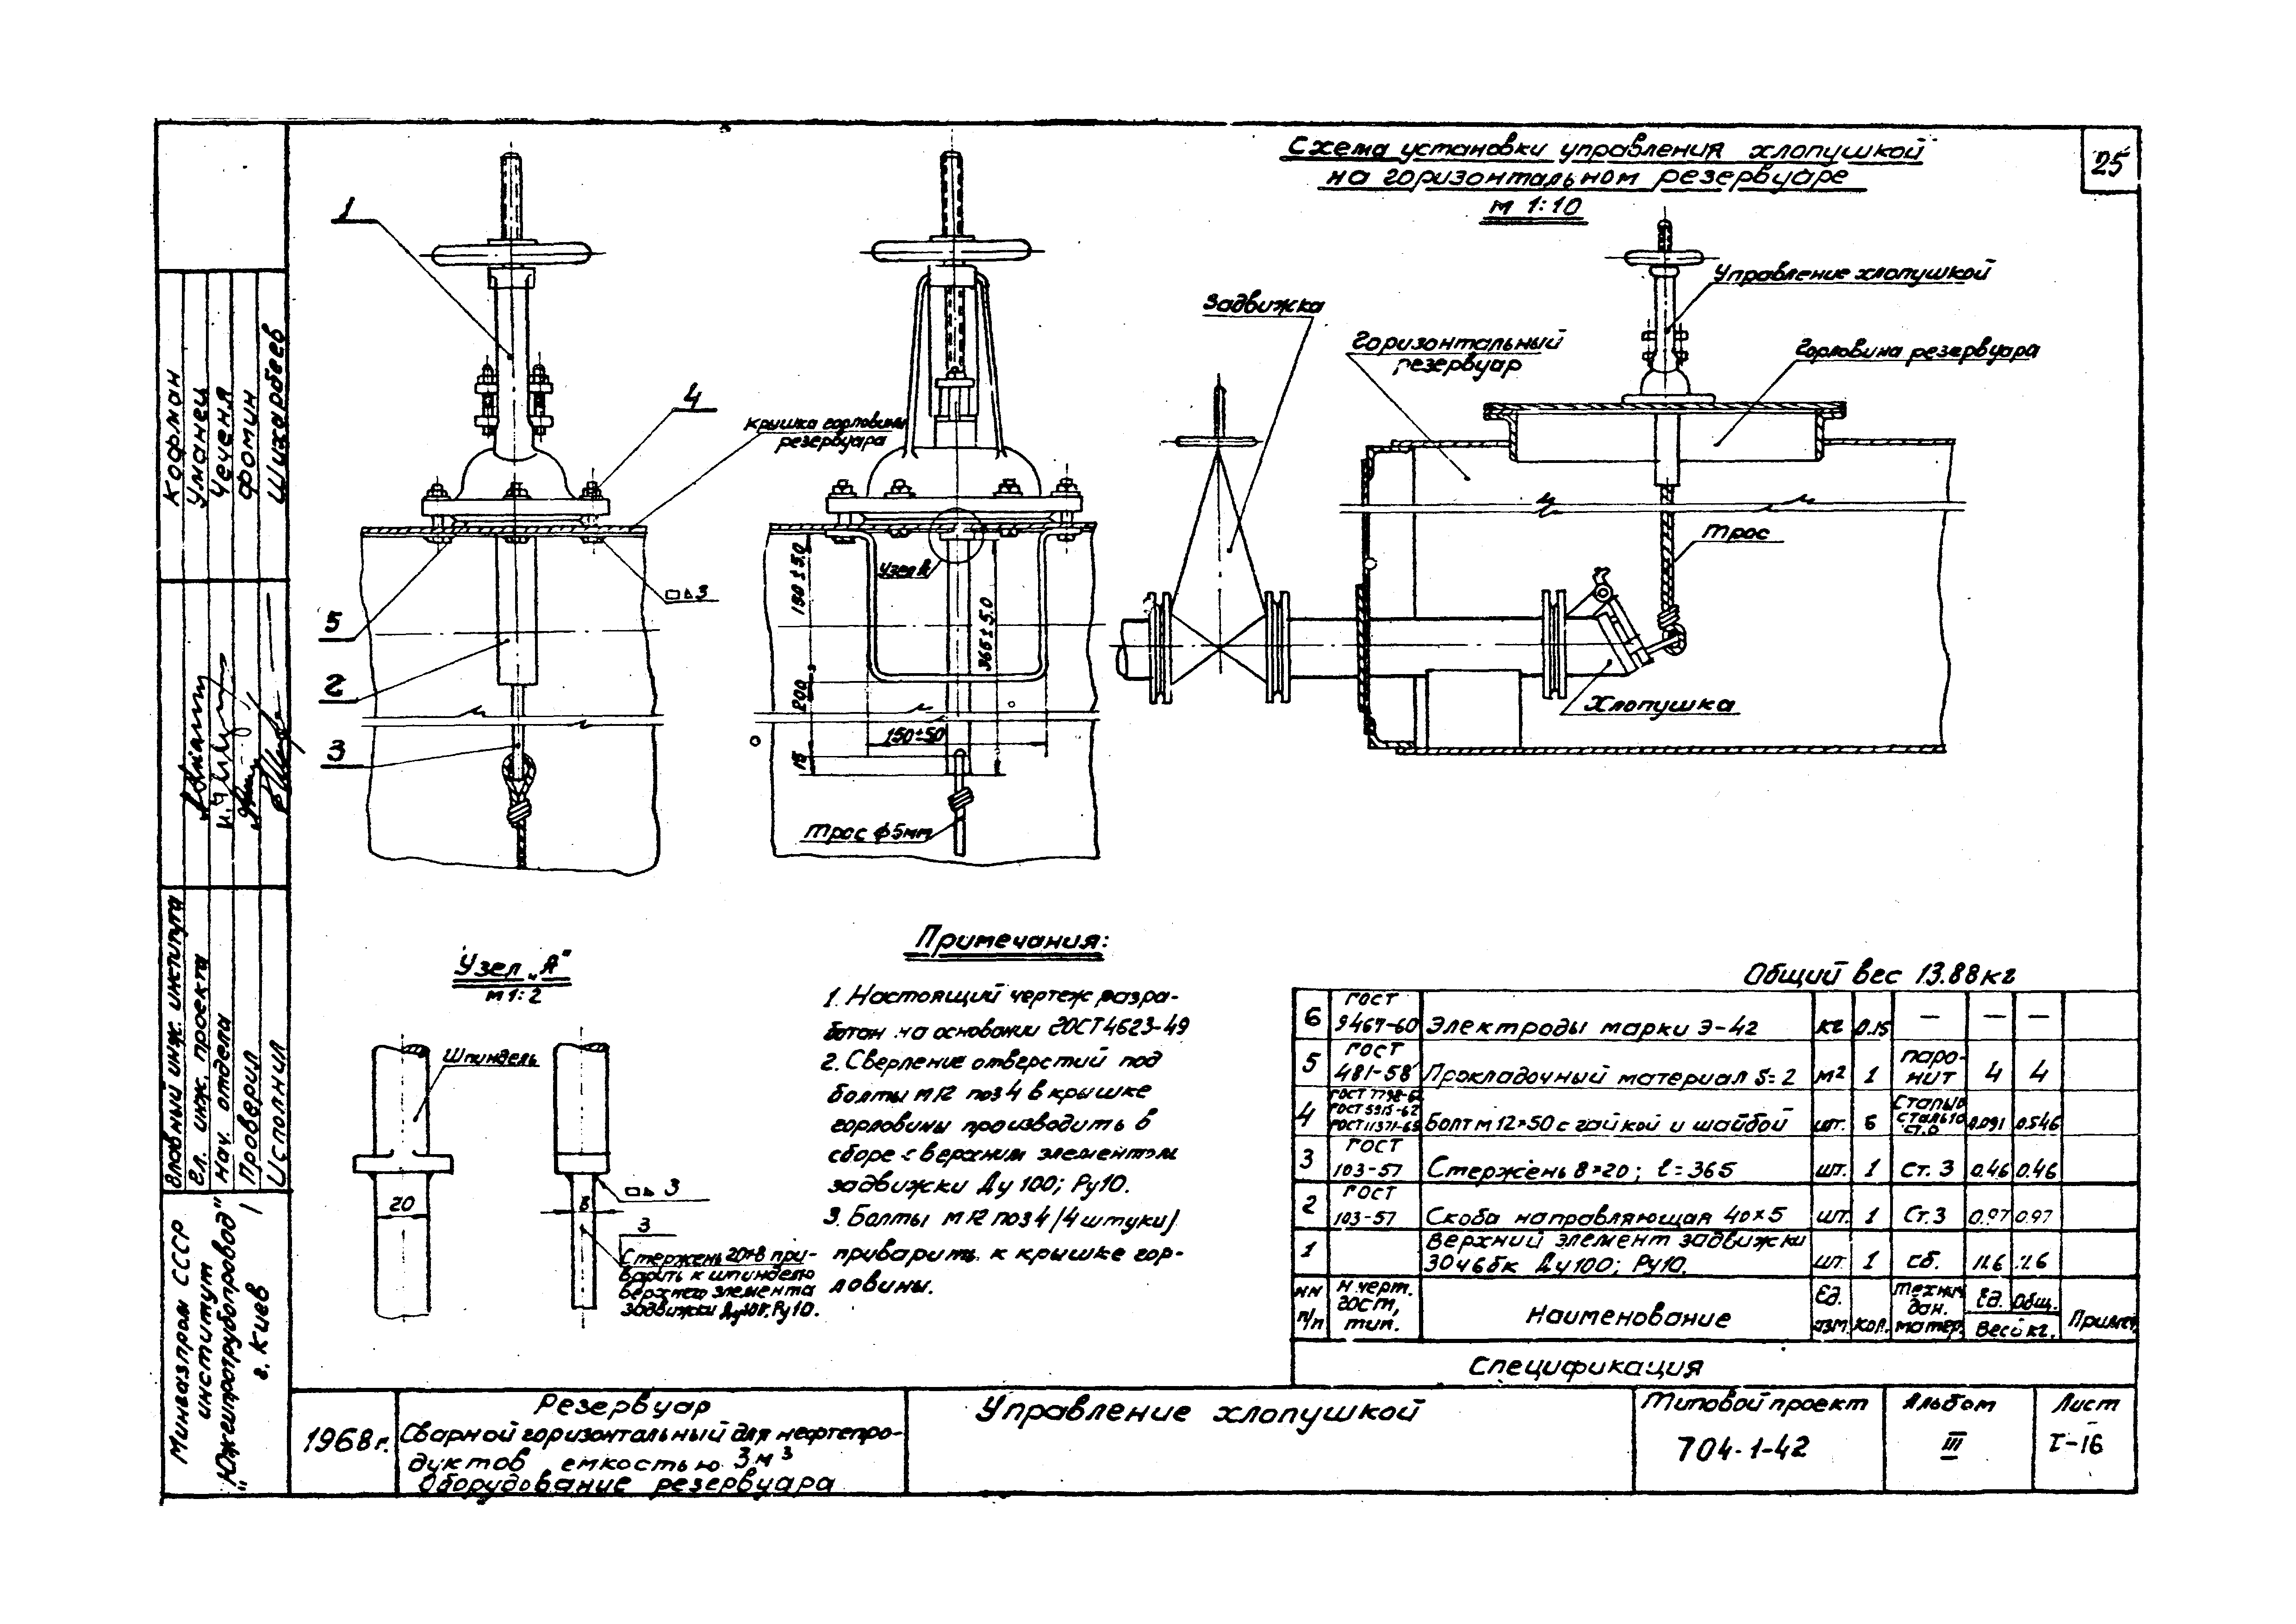 25
Схема установки управления хлопушкой
на горизонтальном резервуаре
м 1:10
1
4
5
2
3
Крышка горловины
резервуара
3
Узел А
150±50
200
15
365±5.0
150±50
Трос ϕ5мм
Задвижка
Горизонтальный
резервуар
Управление хлопушкой
Горловина резервуара
Трос
Хлопушка
Узел „А"
м 1:2
Шпиндель
20
8
3
3
Стержень 20×8 при-
варить к шпинделю
верхнего элемента
задвижки Ру10.
Примечания:
1. Настоящий чертеж разра-
ботан на основании ГОСТ 4623-49
2. Сверление отверстий под
болты м12 поз 4 в крышке
горловины производить в
сборе с верхним элементом
задвижки Ду 100; Ру10.
3. Болты м12 поз 4 /4 штуки/
приварить к крышке гор-
ловины.
Общий вес 13.88кг
6 ГОСТ 9467-60 Электроды марки Э-42 кг 0.15 — — —
5 ГОСТ 481-58 Прокладочный материал S=2 м² 1 паро-нит 4 4
4 ГОСТ 5915-62 ГОСТ 11371-65 Болт м 12×50 с гайкой и шайбой шт. 6 0.091 0.546
3 ГОСТ 103-57 Стержень 8×20; ℓ=365 шт. 1 ст. 3 0.46 0.46
2 ГОСТ 103-57 Скоба направляющая 40×5 шт. 1 Ст.3 0.97 0.97
1 Верхний элемент задвижки 30ч6бк Ду100; Ру10. шт. 1 сб. 11.6 11.6
нн п/п н черт. гост, тип. Наименование Ед. изм. кол. техни. дан. матер. Ед. Общ. Вес в кг. Примеч.
Спецификация
1968г.
Резервуар
Сварной горизонтальный для нефтепро-
дуктов емкостью 3м³
Оборудование резервуара
Управление хлопушкой
Типовой проект
704-1-42
Альбом
III
Лист
I-16
Кофман
Уманец
Чеченя
Фомин
Шихарбеев
Главный инж. института
Гл. инж. проекта
нач. отдела
Проверил
Исполнил
Мингазпром СССР
институт
"Южгипротрубопровод"
г. Киев